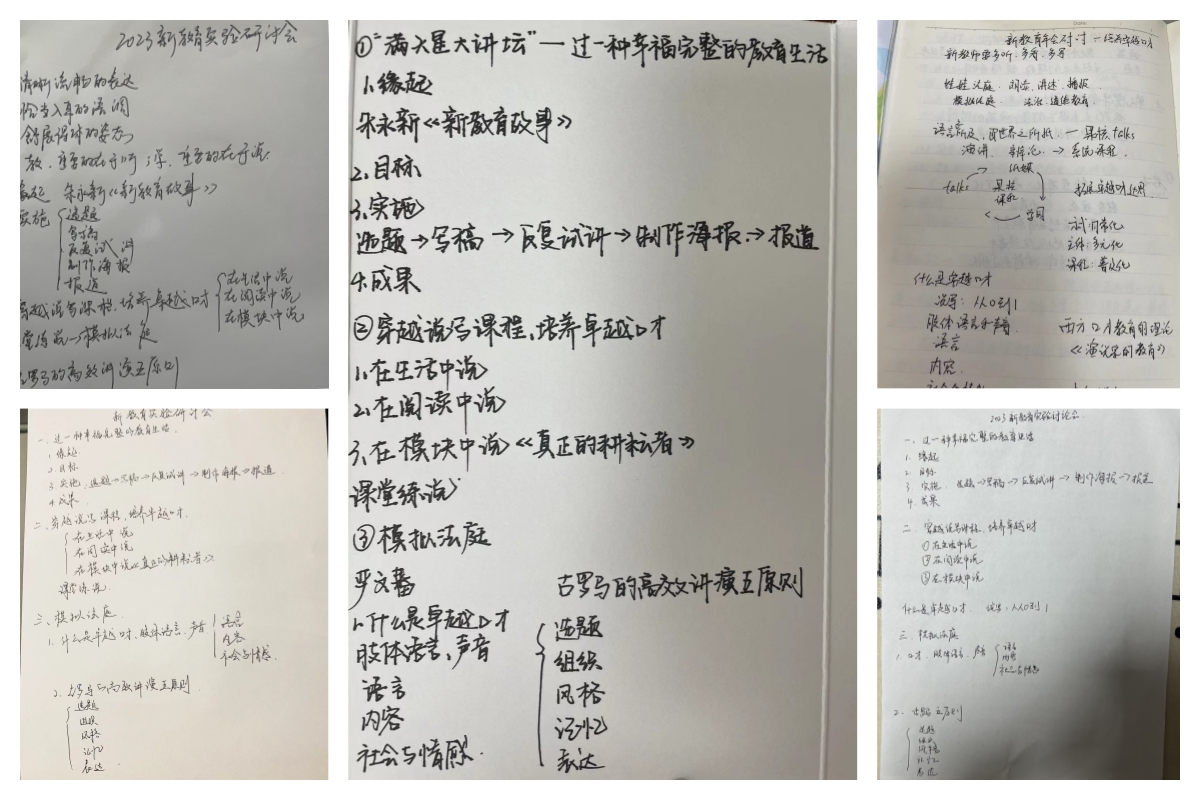 2023新教育实验研讨会
清晰流畅的表达
恰当入耳的语调
舒展得体的姿态
教、重要的在于听 学、重要的在于说
缘起 朱永新《新教育故事》
实施
选题
写稿
反复试讲
制作海报
报道
穿越说写课程、培养卓越口才
在生活中说
在阅读中说
在模块中说
课堂练说 模拟法庭
古罗马的高效讲演五原则
新教育实验研讨会
一、过一种幸福完整的教育生活
1.缘起
2.目标
3.实施、选题→写稿→反复试讲→制作海报→报道
4.成果
二、穿越说写课程,培养卓越口才
在生活中说
在阅读中说
在模块中说《真正的耕耘者》
课堂练说
三、模拟法庭
1.什么是卓越口才、肢体语言、声音
语言
内容
社会与情感
2.古罗马的高效讲演五原则
选题
组织
风格
记忆
表达
①“满天星大讲坛”—过一种幸福完整的教育生活
1.缘起
朱永新《新教育故事》
2.目标
3.实施
选题→写稿→反复试讲→制作海报→报道
4.成果
②穿越说写课程、培养卓越口才
1.在生活中说
2.在阅读中说
3.在模块中说《真正的耕耘者》
课堂练说
③模拟法庭
严文蕃 古罗马的高效讲演五原则
1.什么是卓越口才
肢体语言、声音
语言
内容
社会与情感
选题
组织
风格
记忆
表达
新教师要多听、多看、多写
模拟法庭 法治、道德教育
演讲 辩论 → 系统课程
talks
学习
主体:多元化
课程:普及化
什么是卓越口才
决学:从0到1
肢体语言和声音
语言
内容
西方口才教育的理论
《演说家的教育》
2023新教育实验讨论会
一、过一种幸福完整的教育生活
1.缘起
2.目标
3.实施 选题→写稿→反复试讲→制作海报→报道
4.成果
二、穿越说写课程、培养卓越口才
①在生活中说
②在阅读中说
③在模块中说
什么是卓越口才 从0到1
三、模拟法庭
1.口才、肢体语言、声音
语言
内容
社会与情感
2.古罗马五原则
选题
组织
风格
记忆
表达